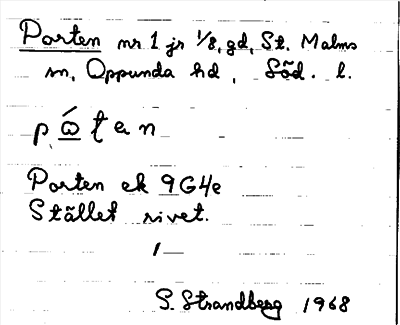 Porten nr 1 jr 1/8, gd, St. Malms
sn, Oppunda hd, Söd. l.
pọ́ten
Porten ek 9G4e
Stället rivet.
S. Strandberg 1968